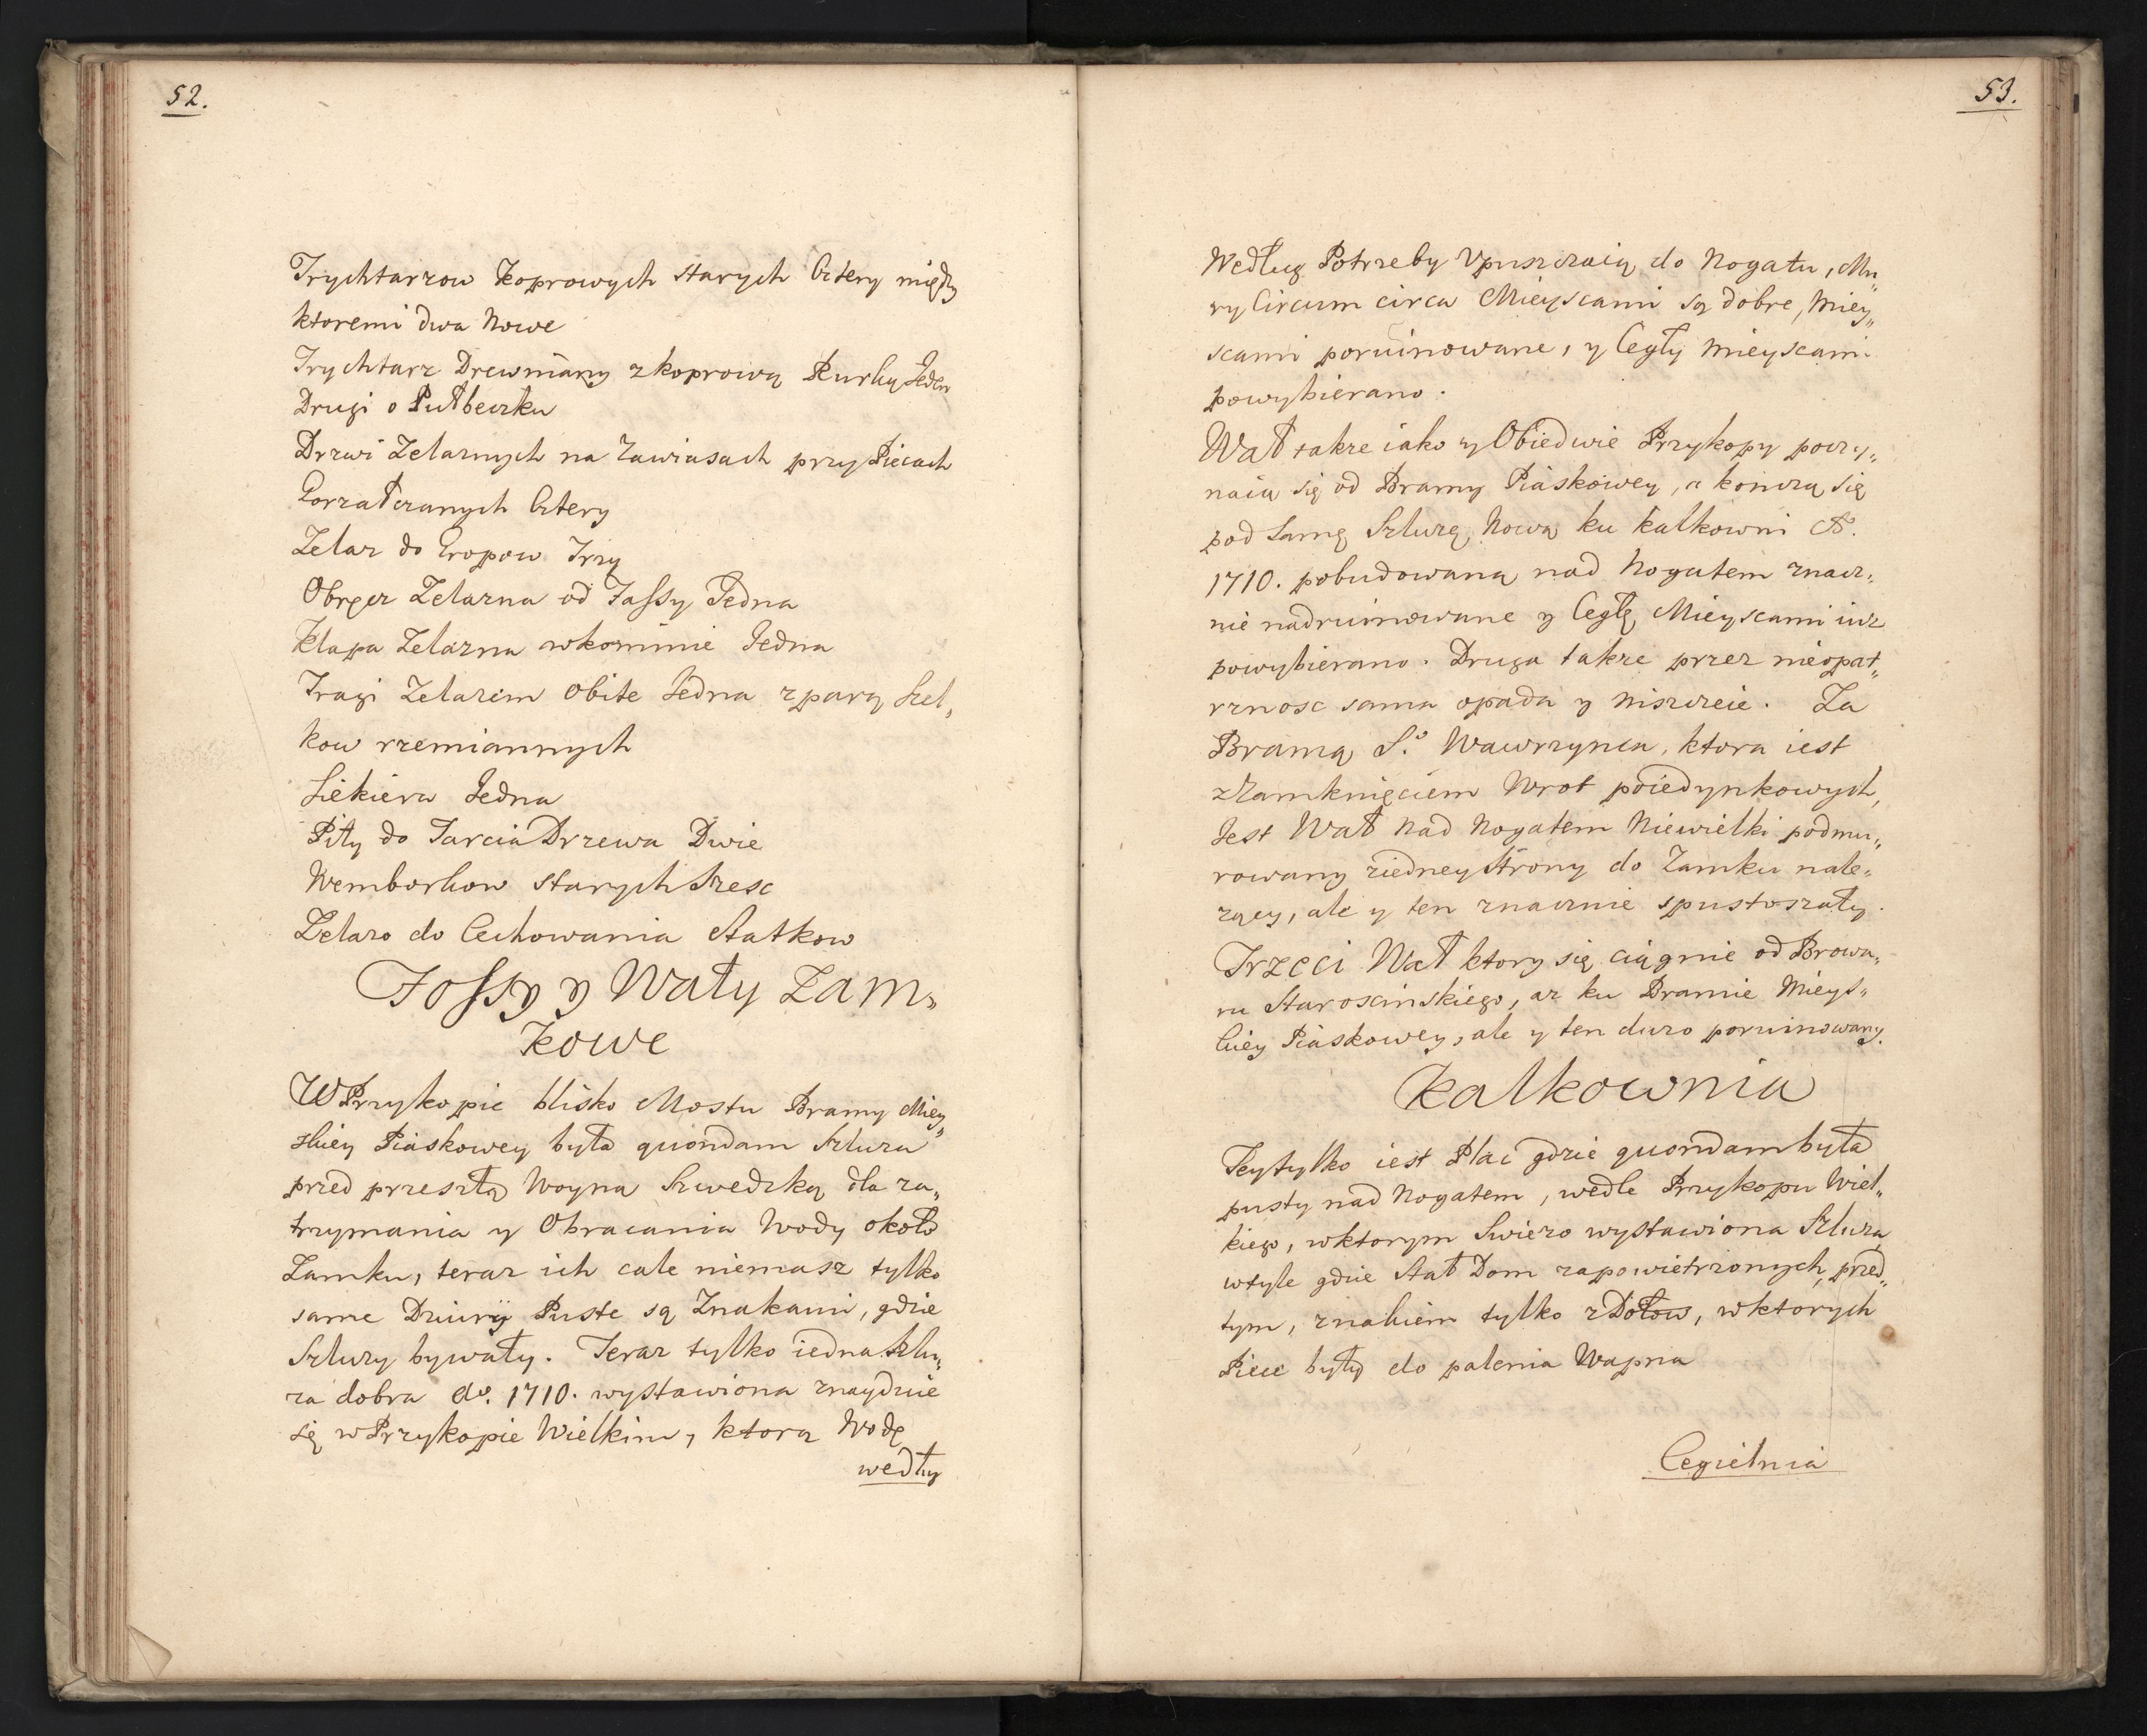 52.
Trychtarzow Koprowych starych Cztery między
ktoremi dwa Nowe
Trychtarz Drewniany z koprową Rurką Jeden
Drugi o Pułbeczku
Drzwi Zelaznych na Zawiasach przy Piecach
Gorzałczanych Cztery
Zelaz do Gropow Trzy
Obręcz Zelazna od Fassy Jedna
Klapa Zelazna w kominie Jedna
Tragi Zelazem Obite Jedna z parą Szel„
kow rzemiannych
Siekiera Jedna
Piły do Tarcia Drzewa Dwie
Wemborkow starych Szesc
Zelazo do Cechowania Statkow
Fossy y Wały Zam„
kowe
W Przykopie blisko Mostu Bramy Miey„
skiey Piaskowey była quondam Szluza
przed przeszłą Woyną Szwedzką dla za„
trzymania y Obracania Wody około
Zamku, teraz ich cale niemasz tylko
same Dziury Puste są Znakami, gdzie
Szluzy bywały. Teraz tylko iedna Szlu„
za dobra Ao. 1710. wystawiona znayduie
się w Przykopie Wielkim, ktorą Wodę
według
53.
Według Potrzeby Vpuszczaią do Nogatu, Mu„
ry Circum circa Mieyscami są dobre, Miey„
scami poruinowane, y Cegły mieyscami
powybierano.
Wał takze iako y Obiedwie Przykopy poczy„
naią się od Bramy Piaskowey, a kończą się
pod Samą Szluzą Nową ku kalkowni Ao.
1710. pobudowaną nad Nogatem znacz„
nie nadruinowane y Cegłę Mieyscami iuz
powybierano. Druga takze przez nieopat„
rznosc sama opada y niszczeie. Za
Bramą S.o Wawrzynca, ktora iest
z Zamknięciem Wrot poiedynkowych,
Jest Wał nad Nogatem Niewielki podmu„
rowany z iedney Strony do Zamku nale„
zący, ale y ten znacznie spustoszały.
Trzeci Wał ktory się ciągnie od Browa„
ru Starościnskiego, az ku Bramie Mieys„
kiey Piaskowey, ale y ten duzo poruinowany.
Kalkownia
Tey tylko iest Plac gdzie quondam była
pusty nad Nogatem, wedle Przykopu Wiel„
kiego, w ktorym Swiezo wystawiona Szluza
w tyle gdzie stał Dom zapowietrzonych przed„
tym, znakiem tylko z Dołow, w ktorych
Piece były do palenia Wapna
Cegielnia